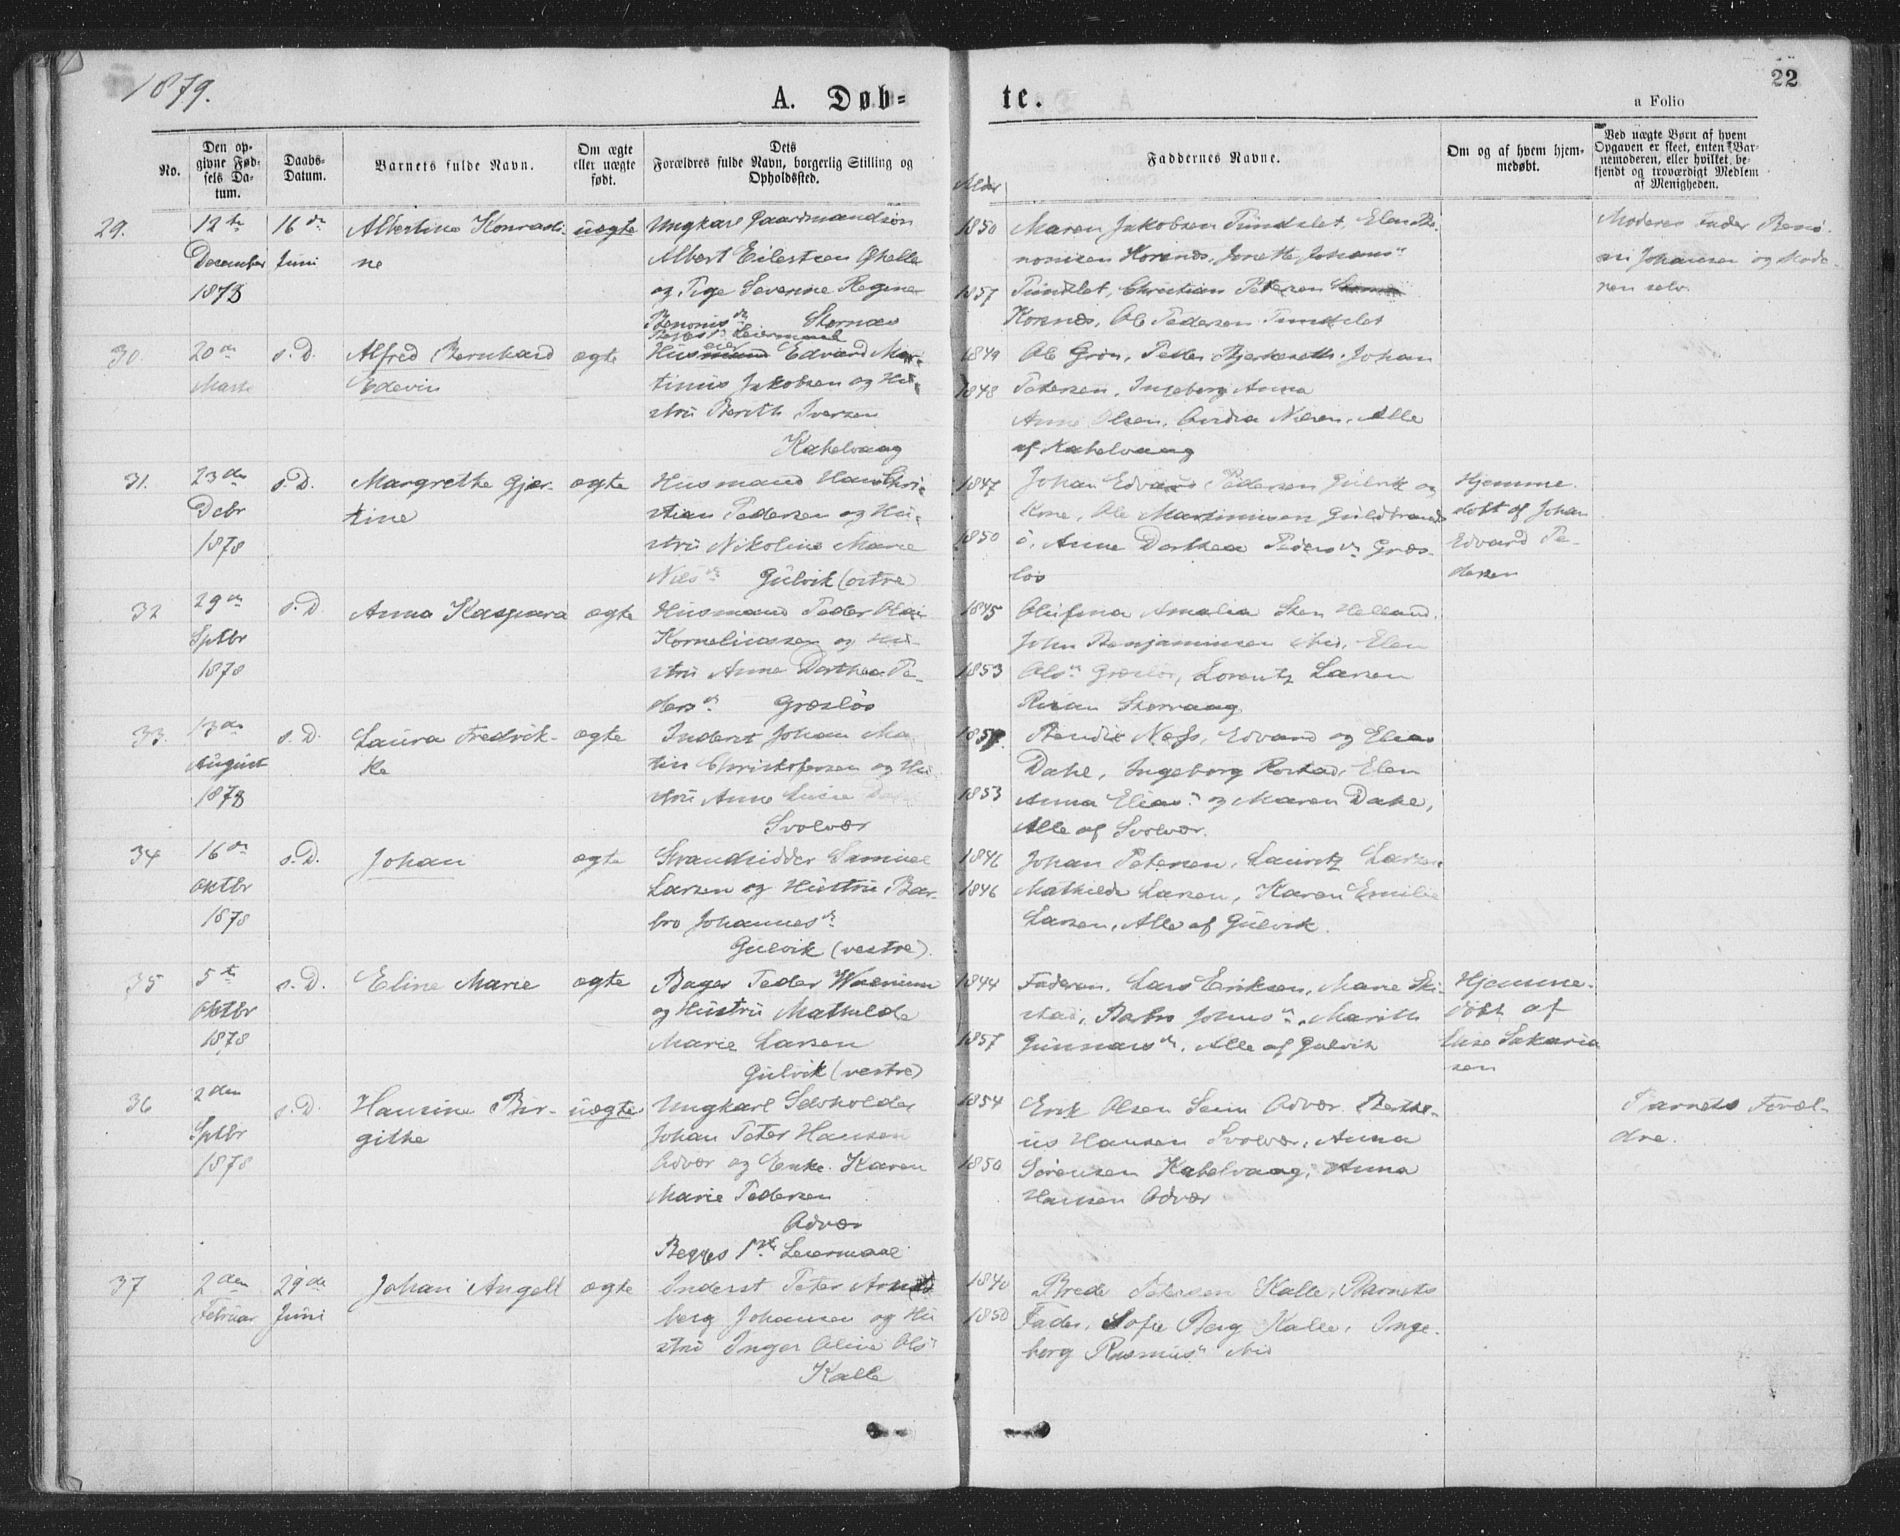 1879.
A. Døb-
te.
22
a Folio
No.
Den op-
givne Fød-
sels Da-
tum.
Daabs-
Datum.
Barnets fulde Navn.
Om ægte
eller uægte
født.
Dets
Forældres fulde Navn, borgerlig Stilling og
Opholdssted.
Alder
Faddernes Navne.
Om og af hvem hjem-
medøbt.
Ved uægte Børn af hvem
Opgaven er skeet, enten Bar-
nemoderen, eller hvilket, be-
kjendt og troværdigt Medlem
af Menigheden.
29.
12te
December
1878
16de
Juni
Albertine Konradi-
ne
uægte
Ungkarl Gaardmandssøn
Albert Eilertsen
og Pige Severine Regine
Benonisdr
Begges 1ste Leiermaal
1850
1857
Maren Jakobsen Tundslet, Elen Be-
nonisen Korsnes, Jonette Johansn
Tundslet, Christian Petersen
Korsnes, Ole Pedersen Tundslet
Moderes Fader Beno-
ni Johansen og Mode-
ren selv
30.
20de
Marts
s. D.
Alfred Bernhard
Edevin
ægte
Huseier Edvard Mar-
tinus Jakobsen og Hu-
stru Berith Iversen
Kabelvaag
1849
1848
Ole Grøn, Peder Bjerkeseth, Johan
Petersen, Ingeborg Anna
Anne Olsen, Ovidia Nilsen, Alle
af Kabelvaag
31.
23de
Debr
1878
s. D.
Margrethe Gjer-
tine
ægte
Husmand Hans Chri-
stian Pedersen og Hu-
stru Nikoline Marie
Nilsdr Gulvik (østre)
1847
1850
Johan Edvard Pedersen Gulvik og
Kone, Ole Martinusen Guldbrands
ö, Anne Dorthea Pedersdr Græs-
løs
Hjemme-
døbt af Johan
Edvard Pe-
dersen
32
29de
Sptbr
1878
s. D.
Anna Kaspara
ægte
Husmand Peder Olai
Korneliussen og Hu-
stru Anne Dorthea Pe-
dersdr Græsløs
1845
1853
Olufina Amalia Sten Helland,
John Benjaminsen ibid, Elen
Olsn Græsløs, Lorentz Larsen
Risan Storvaag
33.
13de
August
1878
s. D.
Laura Fredrik-
ke
ægte
Inderst Johan Ma
tin Christofersen og Hu
stru Anne Lucie
Svolvær
1857
1853
Bendix Næss, Edvard og Elias
Dahl, Ingeborg Rostad, Elen
Anna Eliasn og Maren Dahl,
Alle af Svolvær.
34
16de
Oktbr
1878
s. D.
Johan
ægte
Strandsidder Samuel
Larsen og Hustru Bar-
bro Johannesdr
Gulvik (vestre).
1846
1846
Johan Petersen, Lauritz Larsen
Mathilde Larsen, Karen Emilie
Larsen, Alle af Gulvik.
35
5te
Oktbr
1878
s. D.
Eline Marie
ægte
Bager Peder
og Hustru Mathilde
Marie Larsen
Gulvik (vestre)
1844
1857
Faderen, Lars Eriksen, Marie Ski-
stad, Barbro Johnsn, Marith
Gunnarsdr, Alle af Gulvik
Hjemme-
døbt af
Else Sakaria
sen
36
2den
Sptbr
1878
s. D.
Hansine Bir-
githe
uægte
Ungkarl Selvholder
Johan Peter Hansen
Odvær og Enke Karen
Marie Pedersen
Odvær
Begges 1ste Leiermaal
1854
1850
Erik Olsen Seim Odvær, Berthe-
us Hansen Svolvær, Anna
Sørensen Kabelvaag, Anna
Hansen Odvær
Barnets Foræl-
dre.
37
2den
Februar
29de
Juni
Johan Angell
ægte
Inderst Peter Arndt
berg Johansen og Hu
stru Inger Oline Ols
Kalle
1840
1850
Brede Petersen Kalle, Barnets
Fader, Sofie Berg Kalle, Inge-
borg Rasmusn ibid